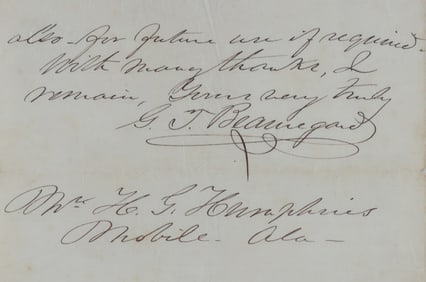 also - for future use if required -
With many thanks, I
remain, Yours very truly
G. T. Beauregard
Mr. H. G. Humphries
Mobile - Ala -